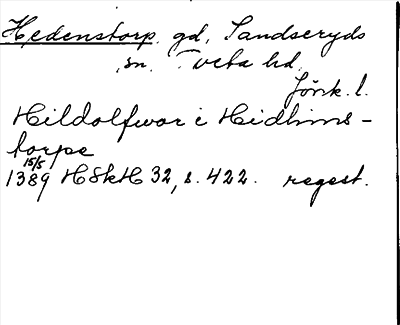 Hedenstorp. gd, Sandseryds
sn. Tveta hd.
Jönk. l.
Hildolfwor i Hidhins-
torpe
15/5
1389 HSkH 32, s. 422. regest.